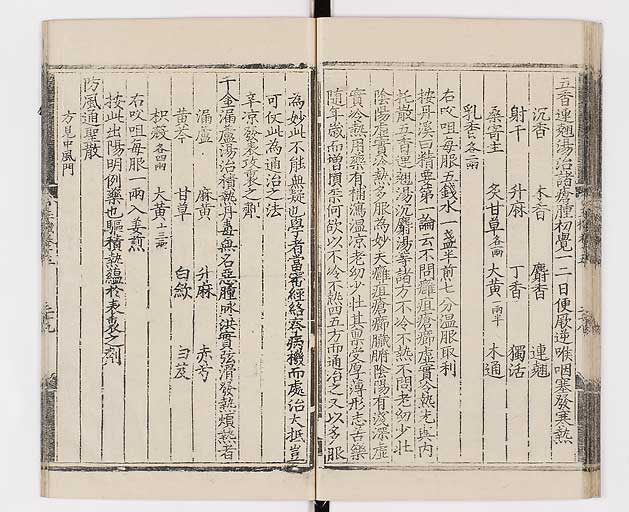 五香連翹湯治諸瘡腫初覺一二日便厥逆喉咽塞發寒熱
沉香 木香 麝香 連翹
射干 升麻 丁香 獨活
桑寄生 炙甘草各二兩 大黃一兩半 木通
乳香各二兩
右㕮咀每服五錢水一盞半煎七分温服取利
按丹溪曰精要第一論云不問癰疽瘡癤虛實冷熱先與内
托散五香連翹湯沉麝湯等諸方不冷不熱不問老幼少壯
陰陽虛實冷熱多服為妙夫癰疽瘡癤臟腑陰陽有淺深虛
實冷熱用藥有補瀉温凉老幼少壯其禀受厚薄形志苦樂
隨年歲而增損柰何欲以不冷不熱四五方而通治之又以多服
為妙此不能無疑也學者當審經絡察病機而處治大抵豈
可仗此為通治之法
辛凉發表攻裏之劑
千金漏蘆湯治積熱丹毒無名惡腫脉洪實弦滑發熱煩熱者
漏蘆 麻黃 升麻 赤芍
黃芩 甘草 白歛 白芨
枳殼各四兩 大黃十三兩
右㕮咀每服一兩入姜煎
按此出陽明例藥也驅積熱蘊於表裏之劑
防風通聖散
方見中風門